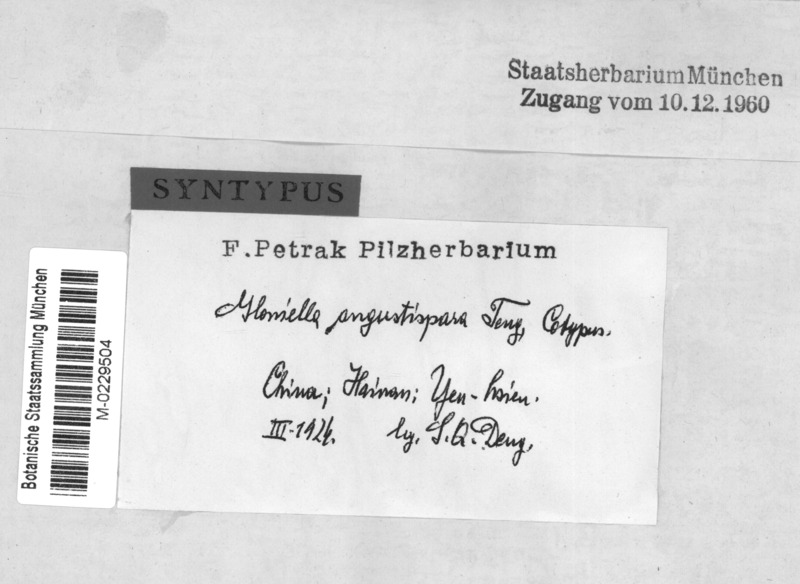 Staatsherbarium München
Zugang vom 10.12.1960
SYNTYPUS
F. Petrak Pilzherbarium
Gloniella angustispora Teng, Cotypus.
China; Hainan; Yen-hsien.
III-1924. leg. S.Q. Deng,
Botanische Staatssammlung München
M-0229504